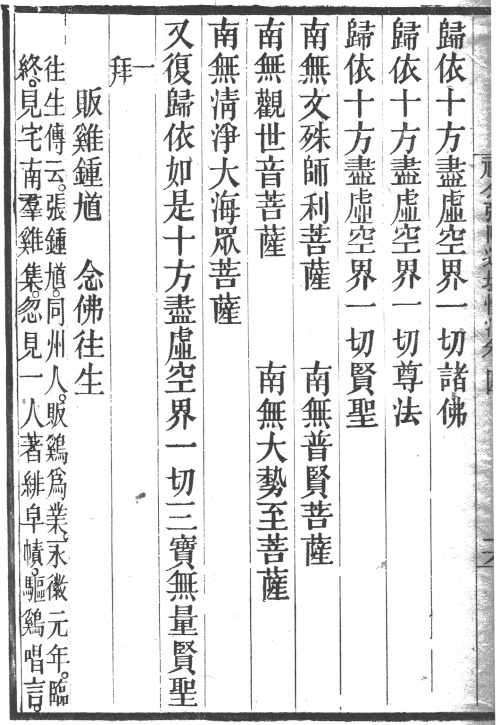 歸依十方盡虛空界一切諸佛
歸依十方盡虛空界一切尊法
歸依十方盡虛空界一切賢聖
南無文殊師利菩薩　南無普賢菩薩
南無觀世音菩薩　南無大勢至菩薩
南無清淨大海眾菩薩
又復歸依如是十方盡虛空界一切三寶無量賢聖
一拜
販雞鍾馗　念佛往生
往生傳云。張鍾馗。同州人。販鷄爲業。永徽元年。臨
終。見宅南羣雞集。忽見一人著緋皁幘。驅鷄唱言。